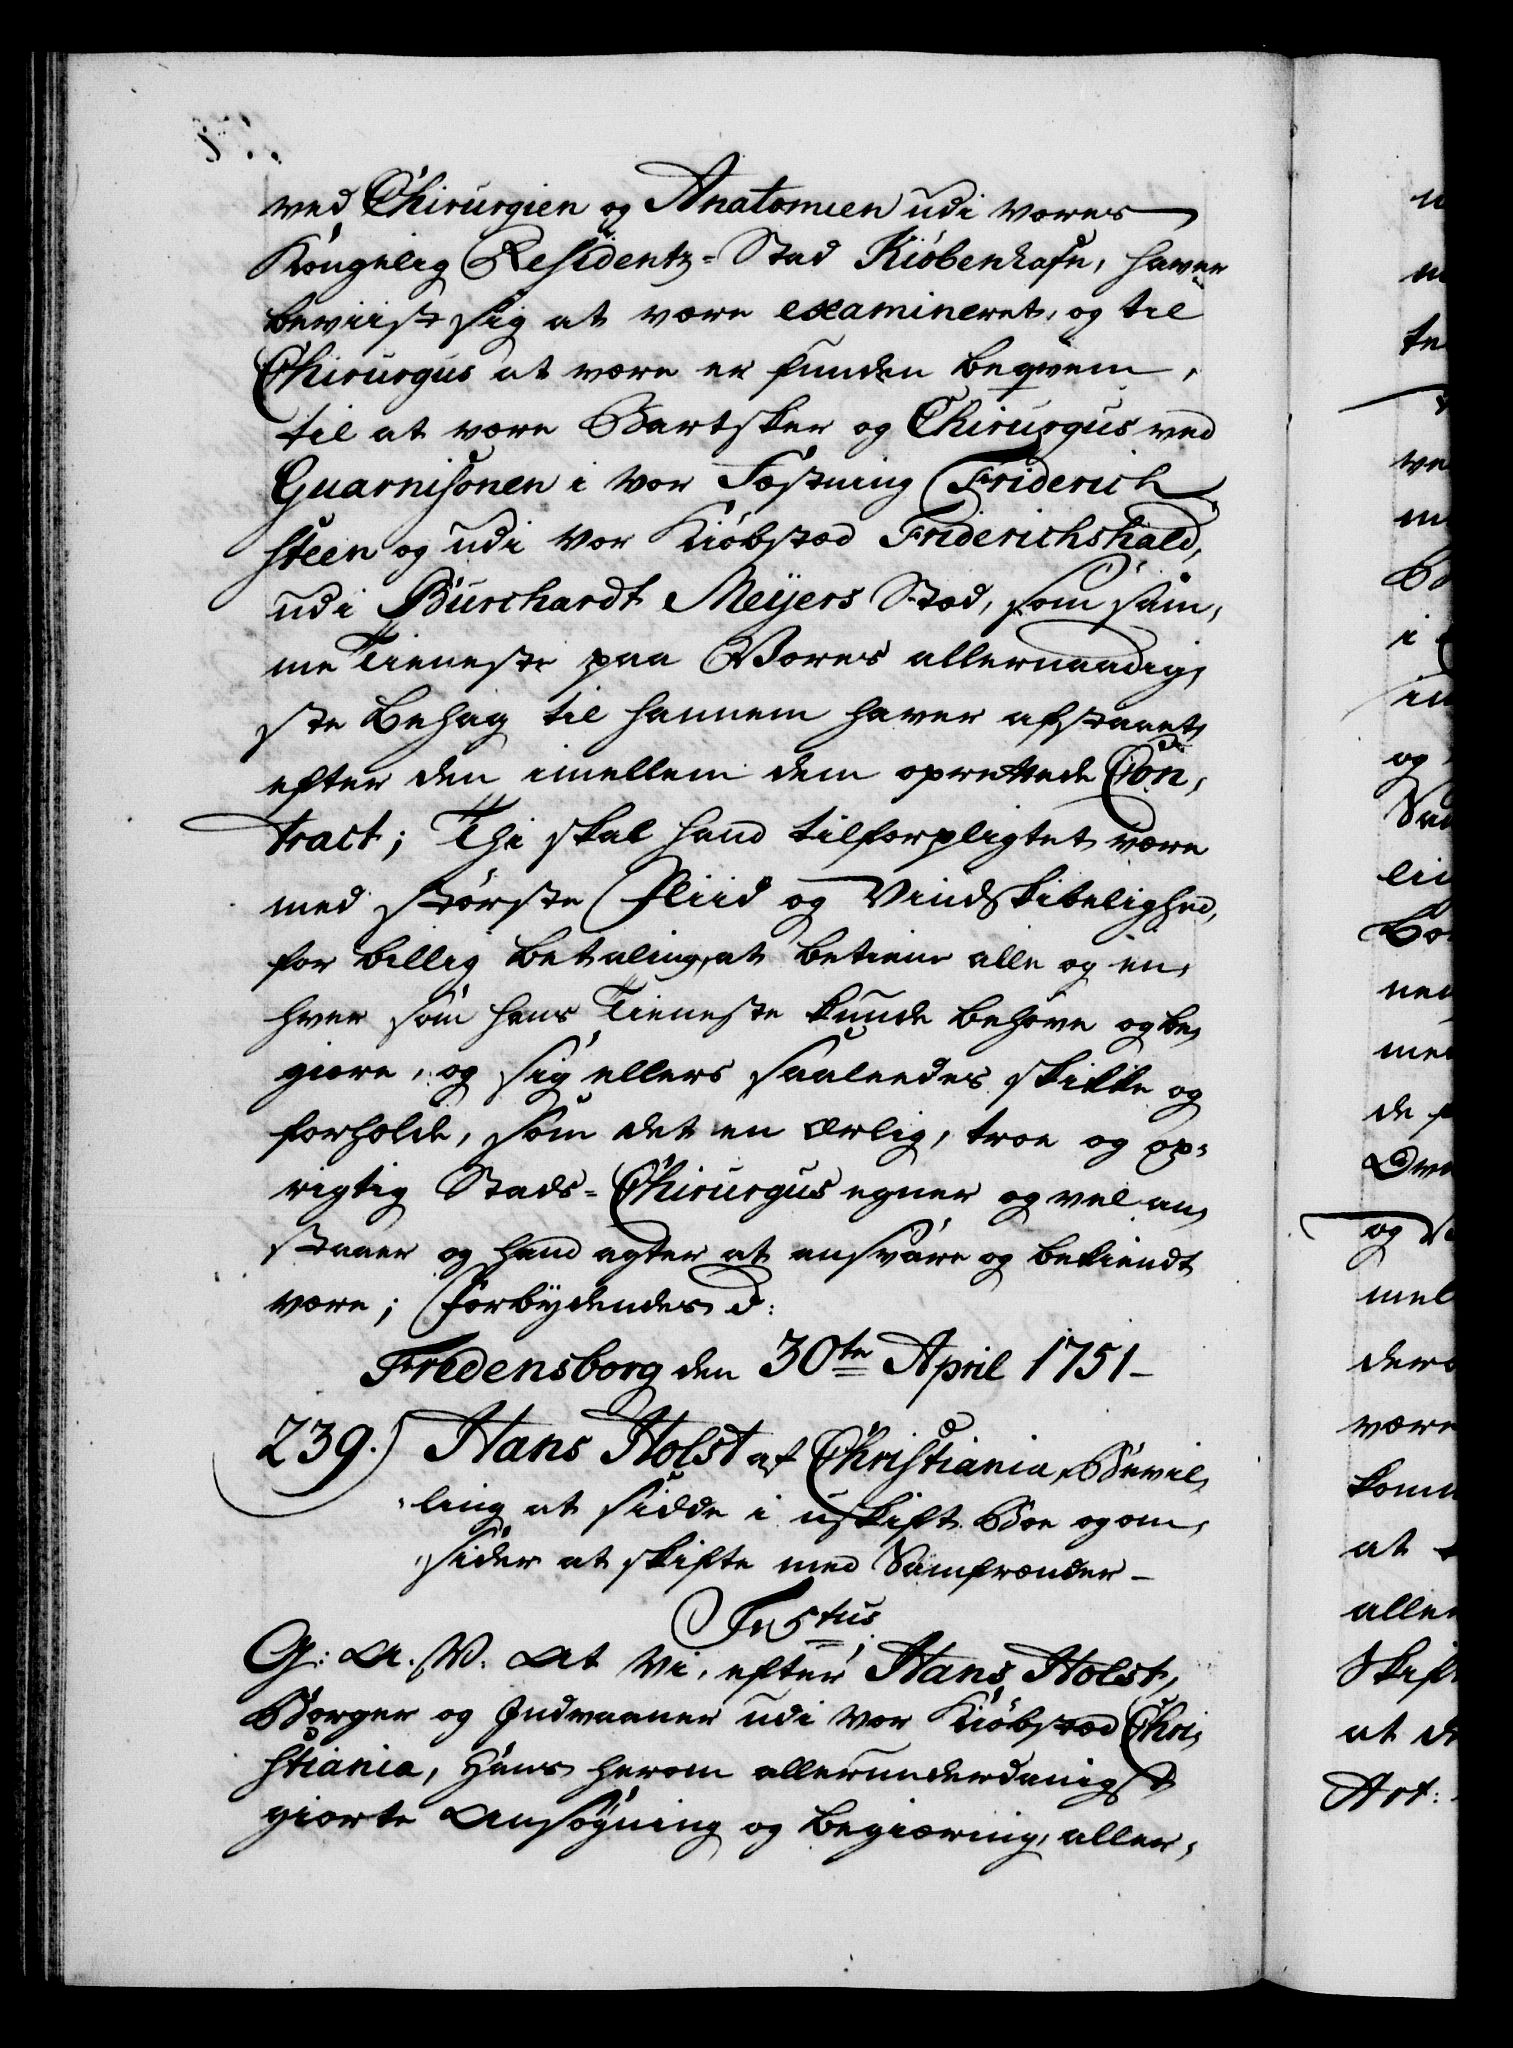 ved Chirurgien og Anatomien udi vores
Kongelig Residentz-Stad Kiöbenhafn, haver
beviist sig at være examineret, og til
Chirurgus at være er funden beqvem,
til at være Bartsker og Chirurgus ved
Guarnisonen i vor Fæstning Friderich
steen og udi vor Kiöbstæd Friderichshald,
udi Burchardt Meÿers Stæd, som sam,
me Tieneste paa Vores allernaadig,
ste Behag til hannem haver afstaaet,
efter den imellem dem oprettede Con,
tract; Thi skal hand tilforpligtet være
med største Fliid og Vindskibelighed,
for billig Betaling, at betiene alle og en,
hver som hans Tieneste kunde behøve og be,
giere, og sig ellers saaledes skikke og
forholde, som det en ærlig, troe og op,
rigtig Stads-Chirurgus egner og vel an,
staaer og hand agter at ansvare og bekiendt
være; Forbÿdendes d:
Fredensborg den 30te April 1751-
239.) Hans Holst af Christiania, Bevil,
ling at sidde i uskift Boe og om,
sider at skifte med Samfrænder-
F. 5tus
G: A. V. At Vi, efter Hans Holst,
Borger og Indvaaner udi vor Kiöbstæd Chri,
stiania, Hans herom allerunderdanigst
giorte Ansøgning og Begiæring, aller,